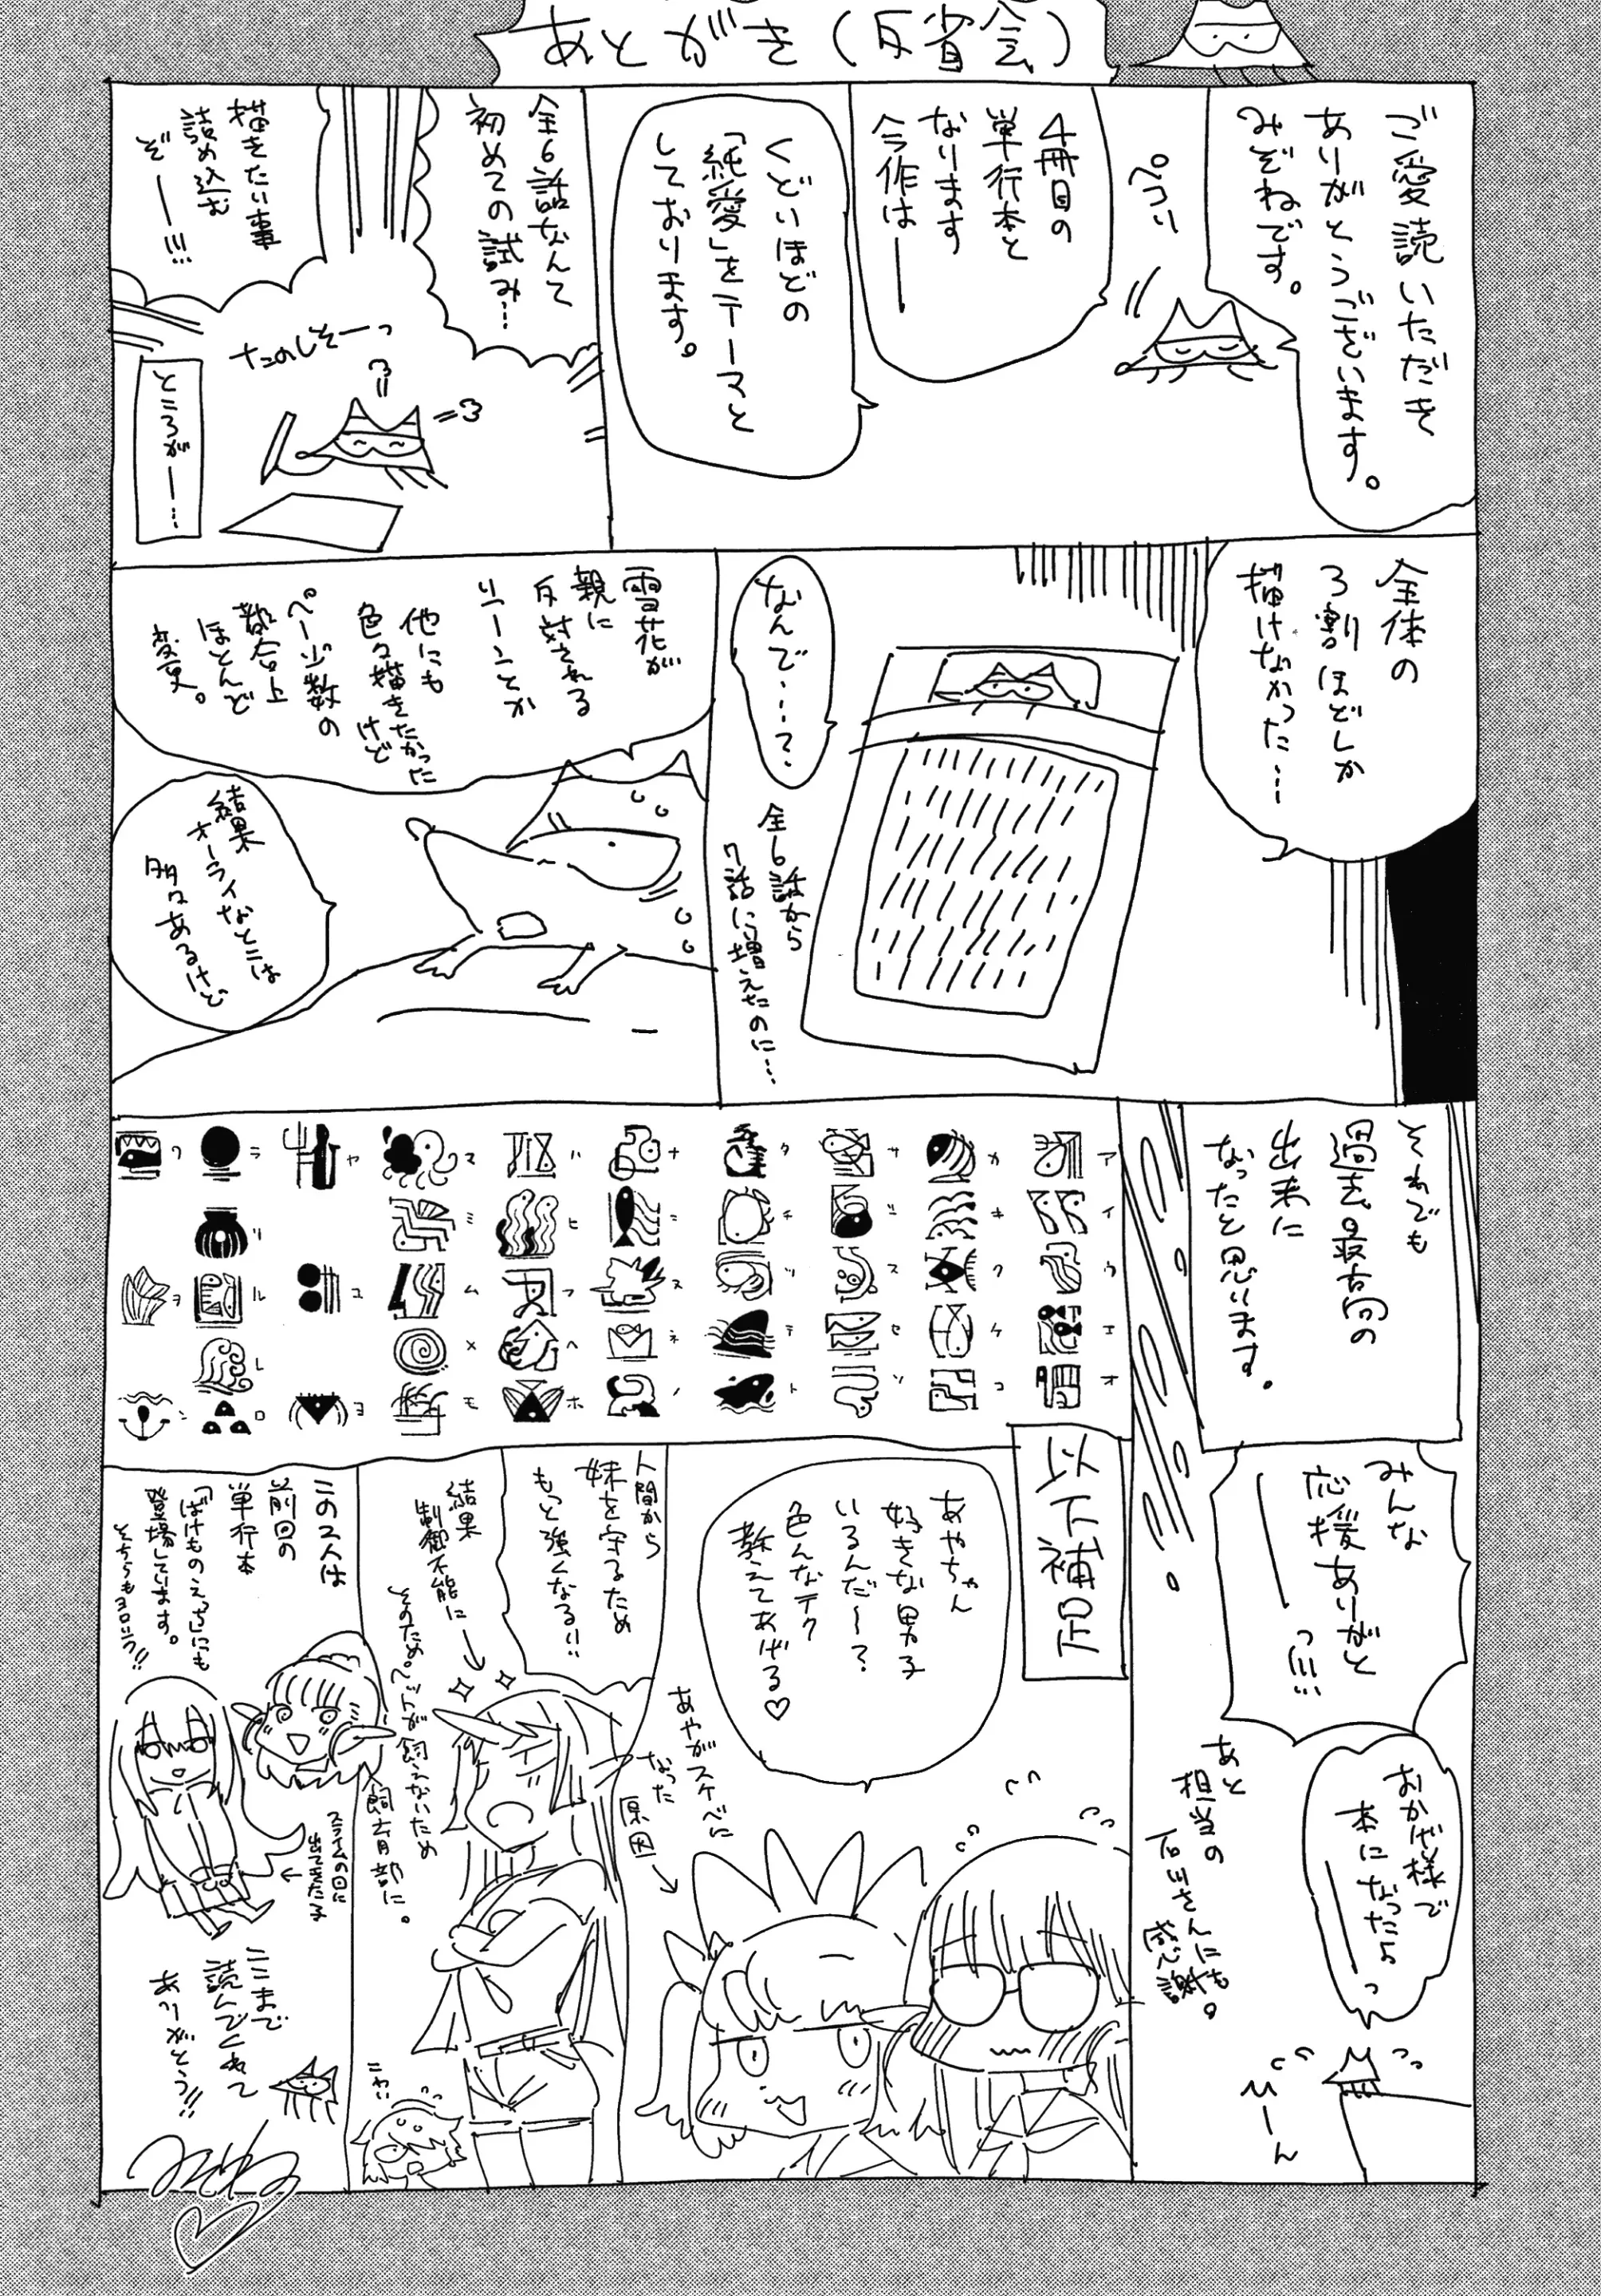 あとがき(反省会)
ご愛読いただき
ありがとうございます。
みぞねです。
ペコリ
4冊目の
単行本と
なります
今作は——
くどいほどの
「純愛」をテーマと
しております。
全6話なんて
初めての試み…
描きたい事
詰め込む
ぞー!!!
たのしそーっ
ところがー…
全体の
3割ほどしか
描けなかった……
なんで……?
全6話から
7話に増えたのに…
雪花が
親に
反対される
シーンとか
他にも
色々描きたかった
けど
ページ数の
都合上
ほとんど
変更。
結果
オーライなとこは
多々あるけど
それでも
過去最高の
出来に
なったと思います。
ア
イ
ウ
エ
オ
カ
キ
ク
ケ
コ
サ
シ
ス
セ
ソ
タ
チ
ツ
テ
ト
ナ
ニ
ヌ
ネ
ノ
ハ
ヒ
フ
ヘ
ホ
マ
ミ
ム
メ
モ
ヤ
ユ
ヨ
ラ
リ
ル
レ
ロ
ワ
ヲ
ン
みんな
応援ありがと
——っ!!!
おかげ様で
本になったよ
——っ
あと
担当の
石川さんにも
感謝。
みーん
以下補足
あやちゃん
好きな男子
いるんだ〜?
色んなテク
教えてあげる♡
あやがスケベに
なった
原因
人間から
妹を守るため
もっと強くなる!!
結果
制御不能に
そのためペットが飼えないため
飼育部に。
こわい
この2人は
前回の
単行本
「ばけものえっち」にも
登場しています。
そちらもヨロシク!!
スライムの回に
出てきた子
ここまで
読んでくれて
ありがとう!!
みぞね